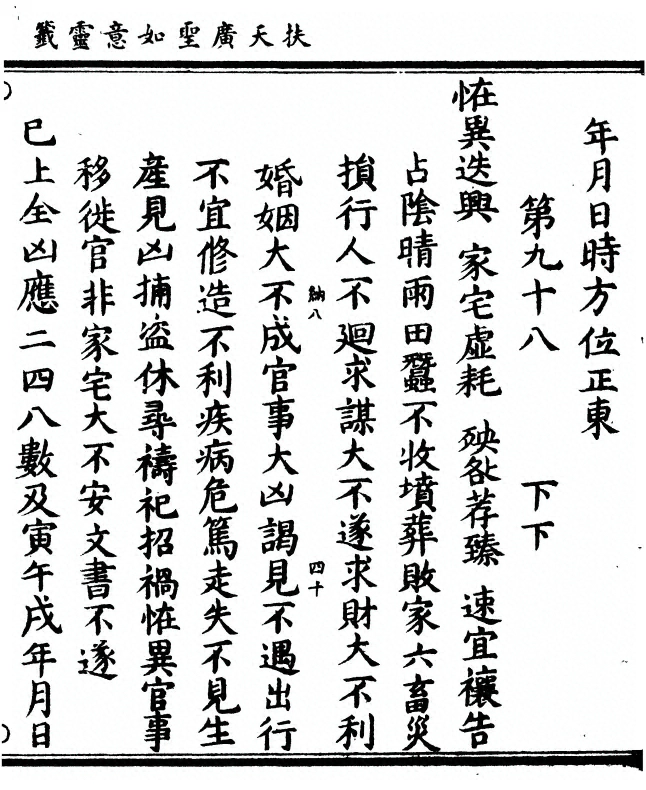 扶天廣聖如意靈籤
年月日時方位正東
第九十八 下下
恠異迭興 家宅虛耗 殃咎荐臻 速宜禳告
占陰晴雨田蠶不收墳葬敗家六畜災
損行人不迴求謀大不遂求財大不利
納八 四十
婚姻大不成官事大凶謁見不遇出行
不宜修造不利疾病危篤走失不見生
產見凶捕盜休尋禱祀招禍恠異官事
移徙官非家宅大不安文書不遂
巳上全凶應二四八數及寅午戌年月日